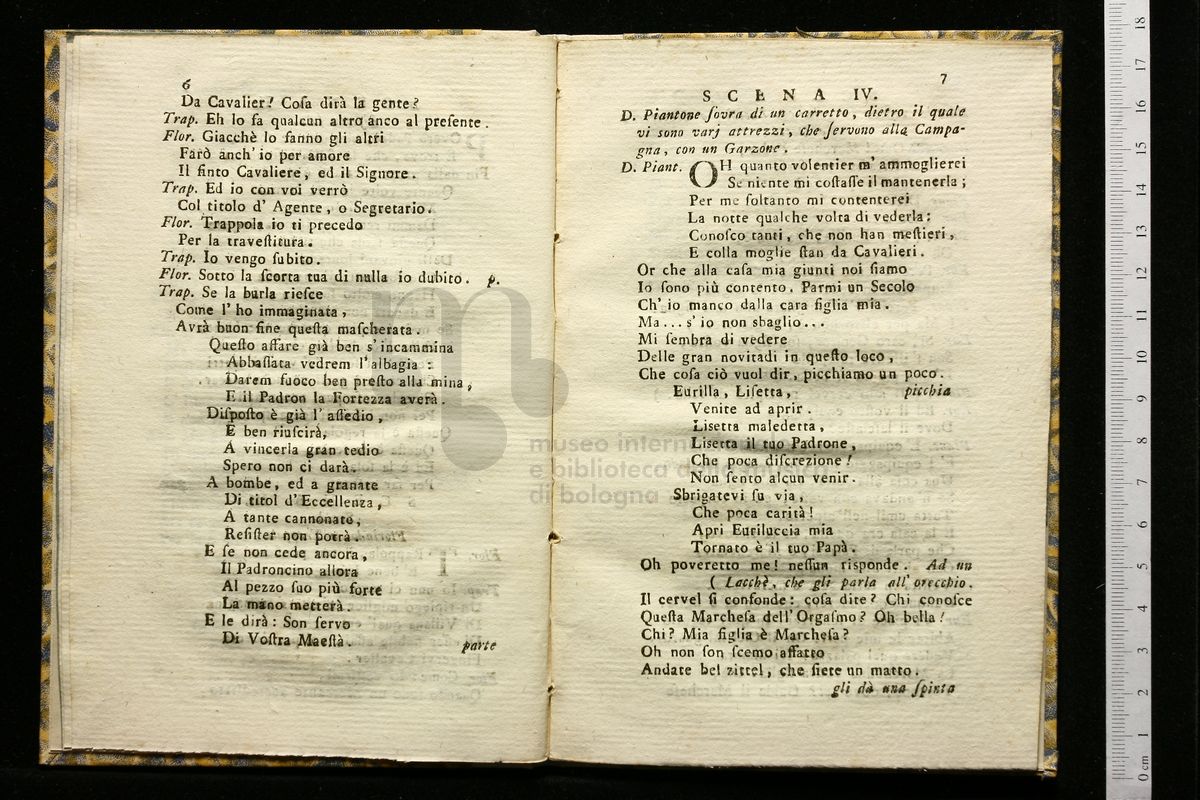 6
Da Cavalier! Coſa dirà la gente?
Trap. Eh lo fa qualcun altro anco al preſente.
Flor. Giacchè lo fanno gli altri
Farò anch' io per amore
Il finto Cavaliere, ed il Signore.
Trap. Ed io con voi verrò
Col titolo d' Agente, o Segretario.
Flor. Trappola io ti precedo
Per la traveſtitura.
Trap. Io vengo ſubito.
Flor. Sotto la ſcorta tua di nulla io dubito. p.
Trap. Se la burla rieſce
Come l' ho immaginata,
Avrà buon fine queſta maſcherata.
Queſto affare già ben s' incammina
Abbaſſata vedrem l'albagia:
Darem fuoco ben preſto alla mina,
E il Padron la Fortezza averà.
Diſpoſto è già l' aſſedio,
E ben riuſcirà,
A vincerla gran tedio
Spero non ci darà.
A bombe, ed a granate
Di titol d' Eccellenza,
A tante cannonate,
Reſiſter non potrà.
E ſe non cede ancora,
Il Padroncino allora
Al pezzo ſuo più forte
La mano metterà.
E le dirà: Son ſervo
Di Voſtra Maeſtà.
parte
7
SCENA IV.
D. Piantone ſovra di un carretto, dietro il quale
vi sono varj attrezzi, che ſervono alla Campa-
gna, con un Garzone.
D. Piant. OH quanto volentier m' ammoglierei
Se niente mi coſtaſſe il mantenerla;
Per me ſoltanto mi contenterei
La notte qualche volta di vederla:
Conoſco tanti, che non han meſtieri,
E colla moglie ſtan da Cavalieri.
Or che alla caſa mia giunti noi ſiamo
Io ſono più contento. Parmi un Secolo
Ch' io manco dalla cara figlia mia.
Ma... s' io non sbaglio...
Mi ſembra di vedere
Delle gran novitadi in queſto loco,
Che coſa ciò vuol dir, picchiamo un poco.
Eurilla, Liſetta, picchia
Venite ad aprir.
Lisetta maledetta,
Lisetta il tuo Padrone,
Che poca diſcrezione!
Non ſento alcun venir.
Sbrigatevi ſu via,
Che poca carità!
Apri Euriluccia mia
Tornato è il tuo Papà.
Oh poveretto me! neſſun risponde. Ad un
( Lacchè, che gli parla all' orecchio.
Il cervel ſi confonde: coſa dite? Chi conoſce
Queſta Marcheſa dell' Orgaſmo? Oh bella!
Chi? Mia figlia è Marcheſa?
Oh non ſon ſcemo affatto
Andate bel zittel, che ſiete un matto.
gli dà una ſpinta
museo intern
e biblioteca della musica
di bologna
18
17
16
15
14
13
12
11
10
9
8
7
6
5
4
3
2
1
0 cm